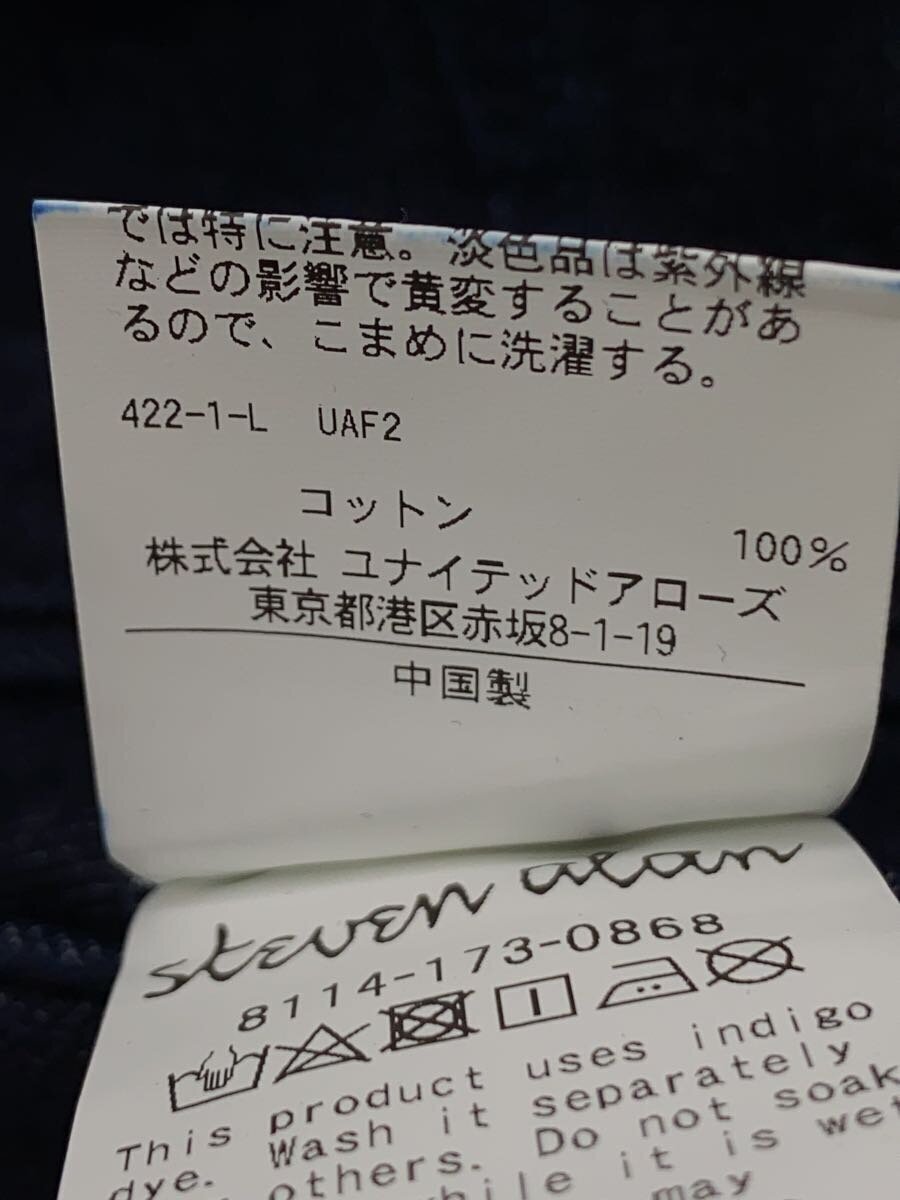 では特に注意。淡色品は紫外線
などの影響で黄変することがあ
るので、こまめに洗濯する。
422-1-L UAF2
コットン 100%
株式会社 ユナイテッドアローズ
東京都港区赤坂8-1-19
中国製
steven alan
8114-173-0868
This product uses indigo
dye. Wash it separately
others. Do not soak
while it is wet
may